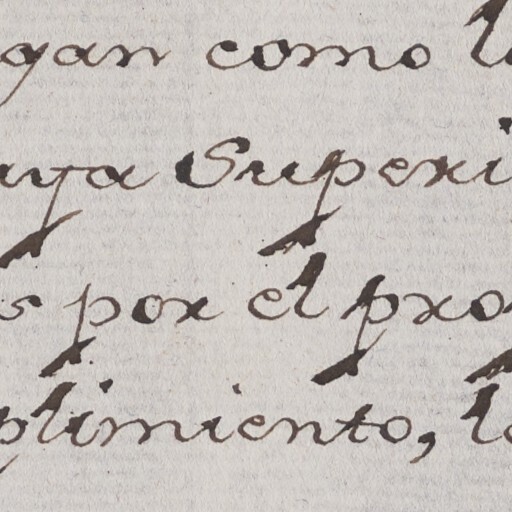 gan como l
uya Superi
s por el pro
plimiento, l